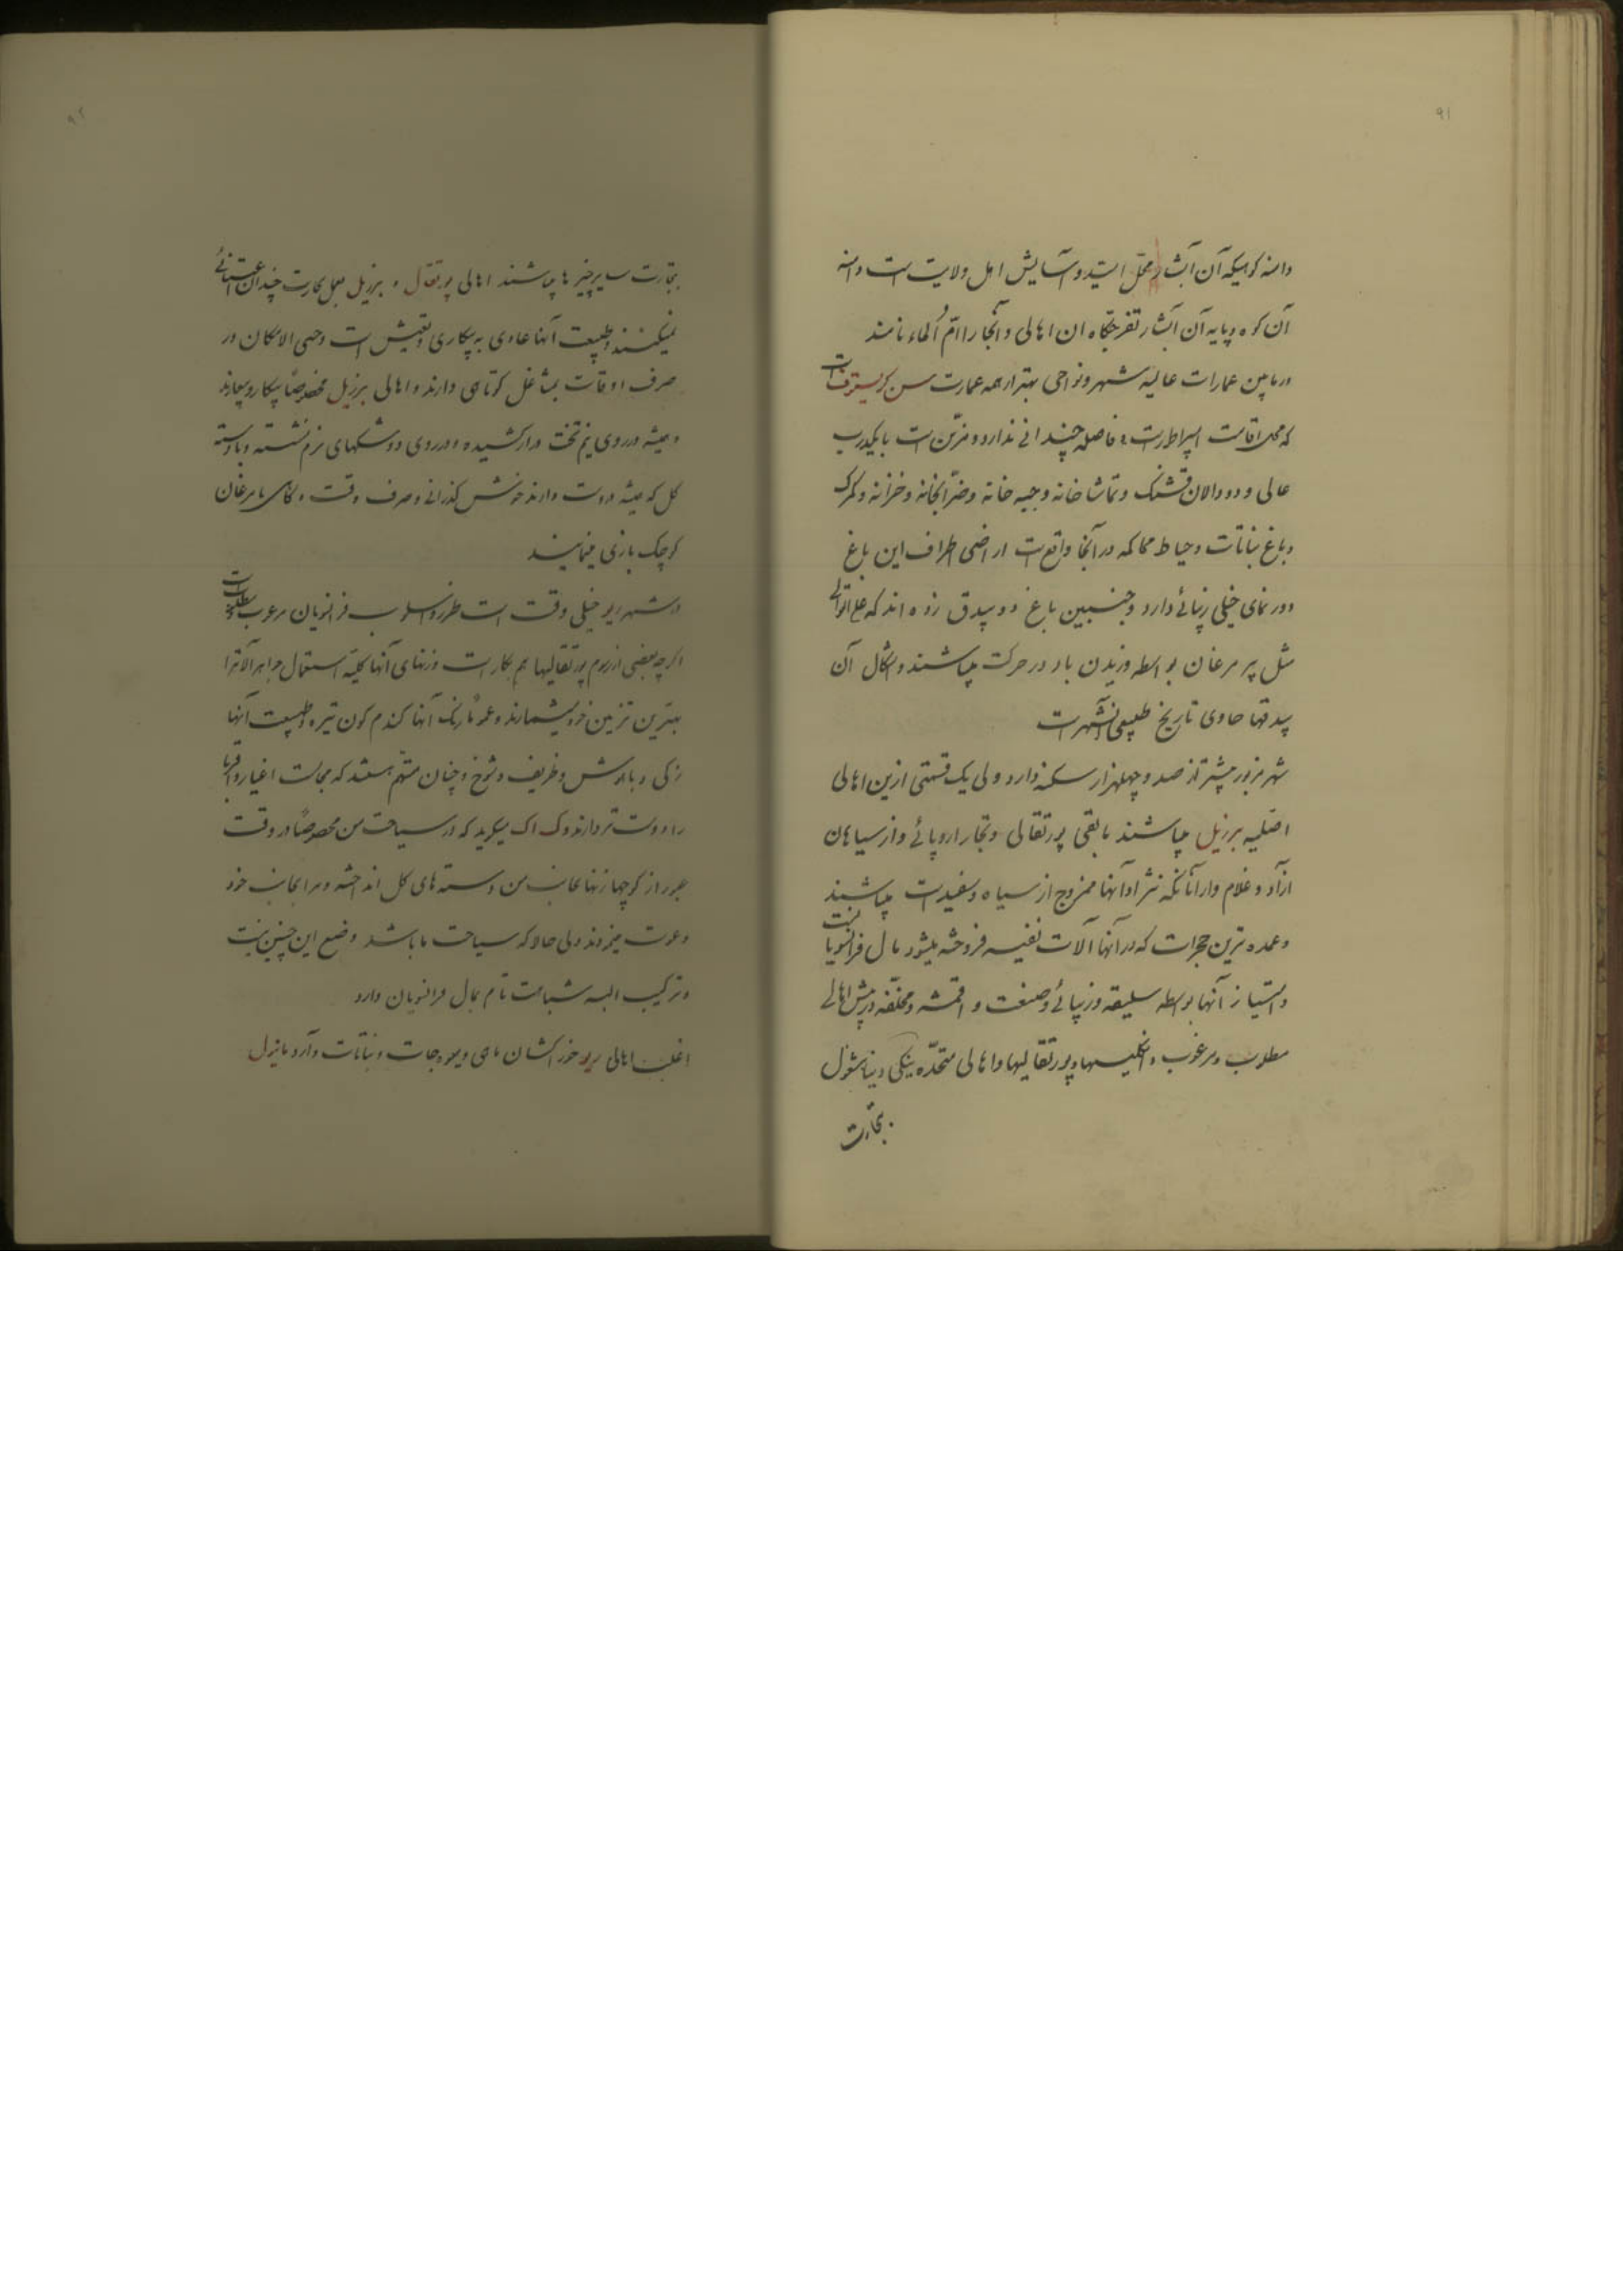 ۹۱
دامنه کوهیکه آن آبشار محل امید و آسایش اهل ولایت است دامنه
آن کوه و پایه آن آبشار تفرجگاه ان اهالی و آنجا را امّ اُلماء نامند
در مابین عمارات عالیه شهر و نواحی بهتر از همه عمارت سن کریستوف است
که محل اقامت امپراطور است فاصله چندانی ندارد و مزّین است با یکدرب
عالی و دو دالان قشنگ و تماشا خانه و جبه خانه و ضرّابخانه و خزانه و گمرک
و باغ نباتات و حیاط محاکمه در آنجا واقع است اراضی اطراف این باغ
دور نمای خیلی زیبائی دارد و جنبین باغ دو بیدق زده اند که علی التوالی
مثل پر مرغان بواسطه وزیدن باد در حرکت میباشند و اشکال آن
بیدقها حاوی تاریخ طبیعی آنشهر است
شهر مزبور بیشتر از صد و چهلهزار سکنه دارد ولی یک قسمتی ازین اهالی
اصلیه برزیل میباشند مابقی پورتقالی و تجار اروپائی و از سیاهان
ازاد و غلام و از آنانکه نژاد آنها ممزوج از سیاه و سفید است میباشند
و عمده ترین حجرات که در آنها آلات نفیسه فروخته میشود مال فرانسویانست
و امتیاز آنها بواسطه سلیقه و زیبائی و صنعت و اقمشه مختلفه در پیش اهالی
مطلوب و مرغوب و انگلیسها و پورتقالیها و اهالی متحدّه ینگی دنیا مشغول
بتجارت
۹۲
بتجارت سایر چیزها میباشند اهالی پورتقال و برزیل بعمل تجارت چندان اعتنائی
نمیکنند و طبیعت آنها عادی به بیکاری و تعیش است و حتی الامکان در
صرف اوقات بمشاغل کوتاهی دارند و اهالی برزیل مخصوصًا بیکار و بیعارند
و همیشه در روی نیم تخت دراز کشیده و در روی دوشکهای نرم نشسته و با دسته
گل که همیشه دوست دارند خوش گذرانی و صرف وقت و گاهی با مرغان
کوچک بازی مینمایند
در شهر ریو خیلی وقت است طرز و اسلوب فرانسویان مرغوب و مطلوبست
اگرچه بعضی از رسوم پورتقالیها هم بکار است و زنهای آنها کلیّه استعمال جواهر آلاترا
بهترین تزیین خود میشمارند و عمومًا رنگ آنها گندم گون تیره و طبیعت آنها
زکی و با هوش و ظریف و شوخ و چنان متهم هستند که مجالست اغیار و اقربا
را دوست تر دارند و ک اک میگوید که در سیاحت من مخصوصًا در وقت
عبور از کوچها زنها بجانب من دسته های گل انداخته و مرا بجانب خود
دعوت مینمودند ولی حالا که سیاحت ما باشد وضع این چنین نیست
و ترکیب البسه شباهت تام بحال فرانسویان دارد
اغلب اهالی ریو خوراکشان ماهی و میوه جات و نباتات و آرد مانیول